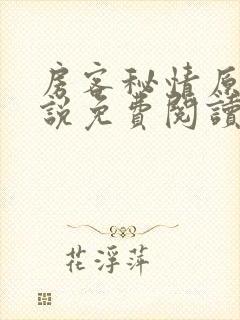 房客秘情原
說免費閱讀
花浮萍